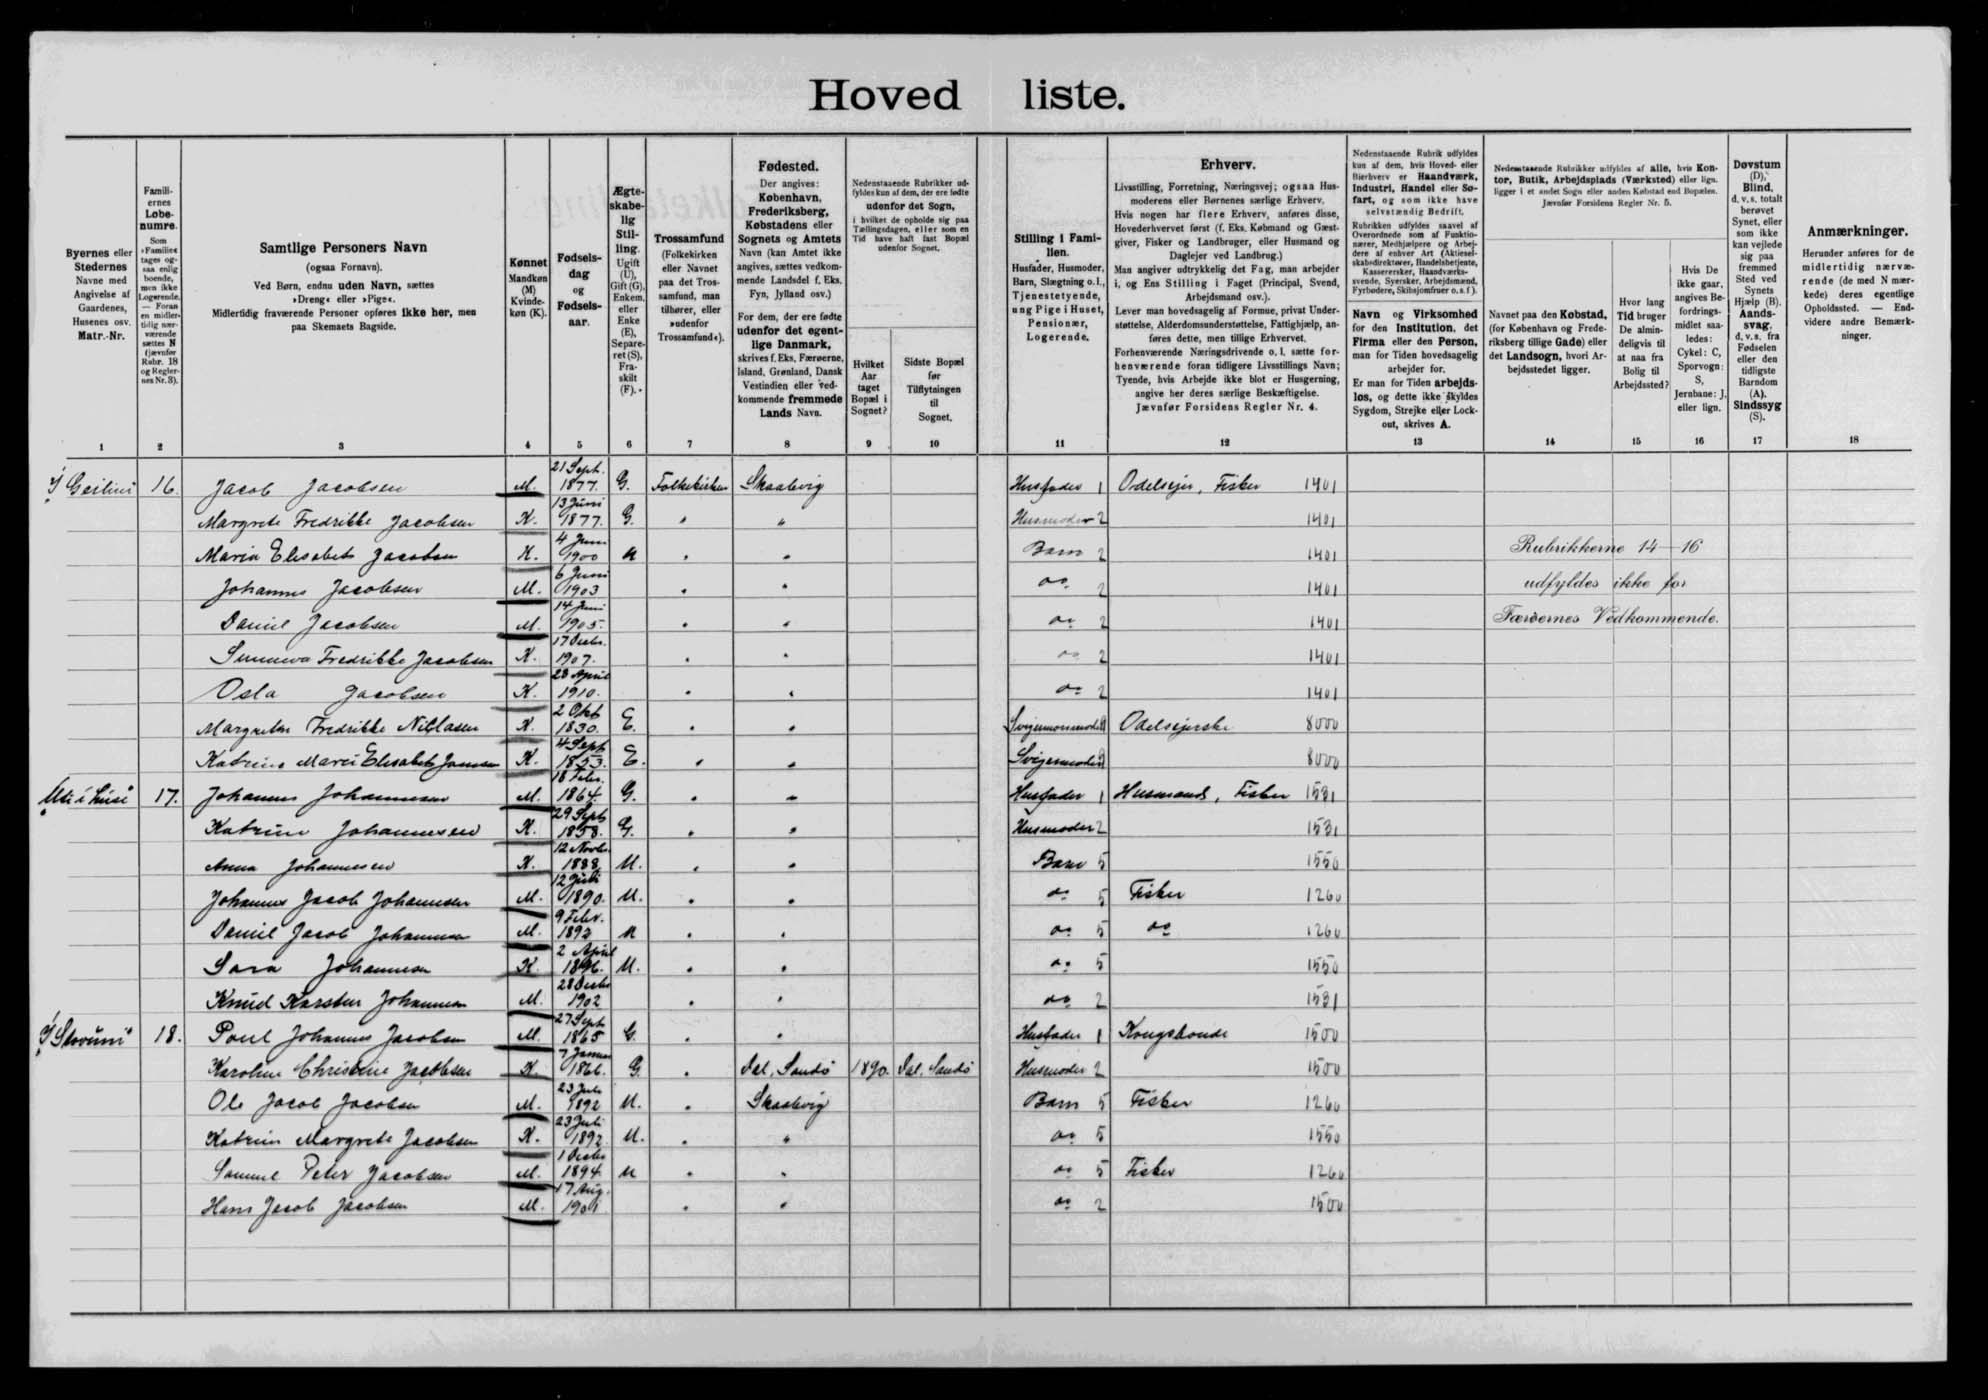 Hoved liste.
Byernes eller Stedernes Navne med Angivelse af Gaardenes, Husenes osv. Matr.-Nr.
Familiernes Løbenumre. Som »Familie« tages ogsaa enlig boende, men ikke Logerende. — Foran en midlertidig nærværende sættes N (jævnfør Rubr. 18 og Reglernes Nr. 3).
Samtlige Personers Navn
(ogsaa Fornavn).
Ved Børn, endnu uden Navn, sættes
»Dreng« eller »Pige«.
Midlertidig fraværende Personer opføres ikke her, men
paa Skemaets Bagside.
Kønnet Mandkøn (M) Kvindekøn (K).
Fødselsdag og Fødselsaar.
Ægteskabelig Stilling. Ugift (U), Gift (G), Enkem. eller Enke (E), Separeret (S), Fraskilt (F).
Trossamfund (Folkekirken eller Navnet paa det Trossamfund, man tilhører, eller »udenfor Trossamfund«).
Fødested.
Der angives: København, Frederiksberg, Købstadens eller Sognets og Amtets Navn (kan Amtet ikke angives, sættes vedkommende Landsdel f. Eks. Fyn, Jylland osv.)
For dem, der ere fødte udenfor det egentlige Danmark, skrives f. Eks. Færøerne, Island, Grønland, Dansk Vestindien eller vedkommende fremmede Lands Navn.
Nedenstaaende Rubrikker udfyldes kun af dem, der ere fødte udenfor det Sogn, i hvilket de opholde sig paa Tællingsdagen, eller som en Tid have haft fast Bopæl udenfor Sognet.
Hvilket Aar taget Bopæl i Sognet?
Sidste Bopæl før Tilflytningen til Sognet.
Stilling i Familien.
Husfader, Husmoder, Barn, Slægtning o. l., Tjenestetyende, ung Pige i Huset, Pensionær, Logerende.
Erhverv.
Livsstilling, Forretning, Næringsvej; ogsaa Husmoderens eller Børnenes særlige Erhverv.
Hvis nogen har flere Erhverv, anføres disse, Hovederhvervet først (f. Eks. Købmand og Gæstgiver, Fisker og Landbruger, eller Husmand og Daglejer ved Landbrug.)
Man angiver udtrykkelig det Fag, man arbejder i, og Ens Stilling i Faget (Principal, Svend, Arbejdsmand osv.).
Lever man hovedsagelig af Formue, privat Understøttelse, Alderdomsunderstøttelse, Fattighjælp, anføres dette, men tillige Erhvervet.
Forhenværende Næringsdrivende o. l. sætte forhenværende foran tidligere Livsstillings Navn; Tyende, hvis Arbejde ikke blot er Husgerning, angive her deres særlige Beskæftigelse.
Jævnfør Forsidens Regler Nr. 4.
Nedenstaaende Rubrik udfyldes kun af dem, hvis Hoved- eller Bierhverv er Haandværk, Industri, Handel eller Søfart, og som ikke have selvstændig Bedrift.
Rubrikken udfyldes saavel af Overordnede som af Funktionærer, Medhjælpere og Arbejdere af enhver Art (Aktieselskabsdirektører, Handelsbetjente, Kasserersker, Haandværkssvende, Syersker, Arbejdsmænd, Fyrbødere, Skibsjomfruer o. s. f.).
Navn og Virksomhed for den Institution, det Firma eller den Person, man for Tiden hovedsagelig arbejder for.
Er man for Tiden arbejdsløs, og dette ikke skyldes Sygdom, Strejke eller Lockout, skrives A.
Nedenstaaende Rubrikker udfyldes af alle, hvis Kontor, Butik, Arbejdsplads (Værksted) eller lign. ligger i et andet Sogn eller anden Købstad end Bopælen.
Jævnfør Forsidens Regler Nr. 5.
Navnet paa den Købstad, (for København og Frederiksberg tillige Gade) eller det Landsogn, hvori Arbejdsstedet ligger.
Hvor lang Tid bruger De almindeligvis til at naa fra Bolig til Arbejdssted?
Hvis De ikke gaar, angives Befordringsmidlet saaledes: Cykel: C, Sporvogn: S, Jernbane: J, eller lign.
Døvstum (D), Blind, d. v. s. totalt berøvet Synet, eller som ikke kan vejlede sig paa fremmed Sted ved Synets Hjælp (B). Aandssvag, d. v. s. fra Fødselen eller den tidligste Barndom (A). Sindssyg (S).
Anmærkninger.
Herunder anføres for de midlertidig nærværende (de med N mærkede) deres egentlige Opholdssted. — Endvidere andre Bemærkninger.
1 2 3 4 5 6 7 8 9 10 11 12 13 14 15 16 17 18
16. Jacob Jacobsen M. 21 Sept. 1877. G. Folkekirken Skaalevig Husfader 1 Odelsejer, Fisker 1401
Margrete Fredrikke Jacobsen K. 13 Juni 1877. G. " " Husmoder 2 1401
Maria Elisabet Jacobsen K. 4 Juni 1900 U " " Barn 2 1401
Johannes Jacobsen M. 6 Juni 1903 " " do 2 1401
Daniel Jacobsen M. 14 Juni 1905. " " do 2 1401
Sunneva Fredrikke Jacobsen K. 17 Decbr. 1907. " " do 2 1401
Osla Jacobsen K. 23 April 1910. " " do 2 1401
Margrethe Fredrikke Niclasen K. 2 Okt 1830. E. " " Odelsejerske 8000
Katrine Marie Elisabeth K. 4 Sept 1853. E. " " Svigermoder 8000
Rubrikkerne 14—16
udfyldes ikke for
Færøernes Vedkommende.
17. Johannes Johannesen M. 18 Febr. 1864. G. " " Husfader 1 Husmand, Fisker 1531
Katrine Johannesen K. 29 Sept 1858. G. " " Husmoder 2 1531
Anna Johannesen K. 12 Novbr. 1888. U. " " Barn 5 1550
Johannes Jacob Johannesen M. 12 Juli 1890. U. " " do 5 Fisker 1260
Daniel Jacob Johannesen M. 9 Febr. 1893 U " " do 5 do 1260
Sara Johannesen K. 2 April 1896. U. " " do 5 1550
Knud Karsten Johannesen M. 28 Decbr 1902 " " do 2 1531
18. Poul Johannes Jacobsen M. 27 Sept 1865 G. " " Husfader 1 Kongsbonde 1500
Karoline Christine Jacobsen K. 7 Januar 1866. G. " Dal, Sandø 1890. Dal, Sandø Husmoder 2 1500
Ole Jacob Jacobsen M. 23 Juli 1892 U. " Skaalevig Barn 5 Fisker 1260
Katrine Margrete Jacobsen K. 23 Juli 1892. U. " " do 5 1550
Samuel Peter Jacobsen M. 1 Decbr 1894. U " " do 5 Fisker 1260
Hans Jacob Jacobsen M. 17 Aug. 1901 " " do 2 1500